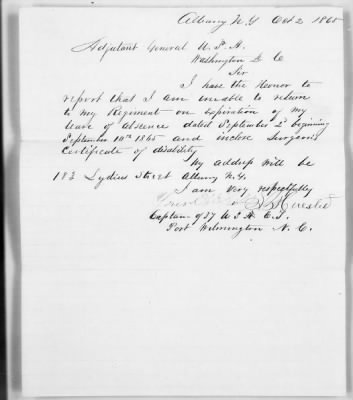 Albany N.Y Oct 2 1865
Adjutant General U.S.A.
Washington D C
Sir
I have the Honor to
report that I am unable to return
to my Regiment on expiration of my
leave of absence dated September 2d beginning
September 10th 1865 and inclose Surgeons
Certificate of disability
My address will be
183 Lydius Street Albany N.Y.
I am very respectfully
Captain of 37 U S A C. T.
Post Wilmington N. C.